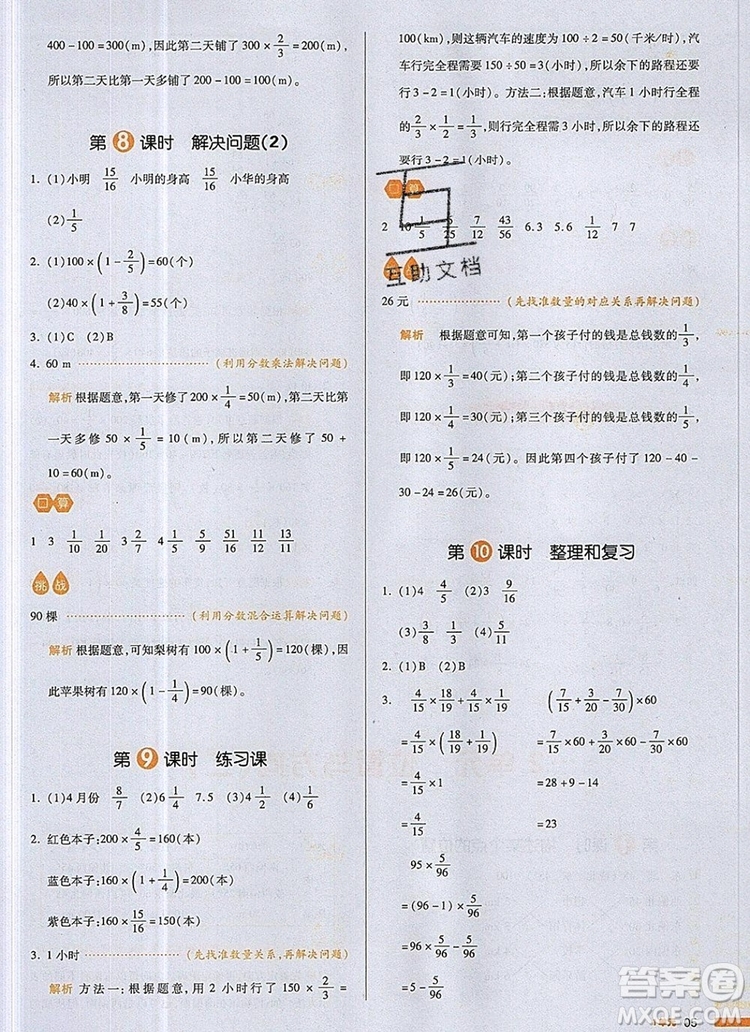 400 - 100 = 300(m)。因此第二天铺了 300 × 2/3 = 200(m)，
所以第二天比第一天多铺了 200 - 100 = 100(m)。
第 8 课时 解决问题(2)
1. (1)小明 15/16 小明的身高 15/16 小华的身高
(2) 1/5
2. (1)100 × (1 - 2/5) = 60(个)
(2)40 × (1 + 3/8) = 55(个)
3. (1)C (2)B
4. 60 m (利用分数乘法解决问题)
解析 根据题意，第一天修了 200 × 1/4 = 50(m)，第二天比第
一天多修 50 × 1/5 = 10(m)，所以第二天修了 50 +
10 = 60(m)。
口算
1 3 1/10 1/20 3 1/2 4 1/5 5/9 51/11 11/12 13/11
挑战
90 棵 (利用分数混合运算解决问题)
解析 根据题意，可知梨树有 100 × (1 + 1/5) = 120(棵)，因
此苹果树有 120 × (1 - 1/4) = 90(棵)。
第 9 课时 练习课
1. (1)4 月份 8/7 (2)6 1/4 7.5 (3)4 1/4
2. 红色本子：200 × 4/5 = 160(本)
蓝色本子：160 × (1 + 1/4) = 200(本)
紫色本子：200 × 1/4 + 100 = 150(本)
3. 1 小时 (先找准数量关系，再解决问题)
解析 方法一：根据题意，用 2 小时行了 150 × 2/3 =
100(km)，则这辆汽车的速度为 100 ÷ 2 = 50(千米/时)，汽
车行完全程要 150 ÷ 50 = 3(小时)，所以余下的路程还要
行 3 - 2 = 1(小时)。方法二：根据题意，汽车 1 小时行了
2/3 ÷ 2 = 1/3，则行完全程要 1 ÷ 1/3 = 3(小时)，所以余下的路
程还要行 3 - 2 = 1(小时)。
口算
2 10 1/5 5/25 7/12 43/56 6.3 5. 1/12 7 7
互助文档
26 元 (先找准数量的对应关系再解决问题)
解析 根据题意可知，第一个孩子付的钱是总钱数的 1/3，
即 120 × 1/3 = 40(元)；第二个孩子付的钱是总钱数的 1/4，
即 120 × 1/4 = 30(元)；第三个孩子付的钱是总钱数的 1/5，
即 120 × 1/5 = 24(元)。因此第四个孩子付了 120 - 40 -
30 - 24 = 26(元)。
第 10 课时 整理和复习
1. (1)4 4/5 (2)3 9/16
(3) 3/8 1/4 (4) 1/5 3/10
2. (1)B (2)B
3. 4/15 × 18/19 + 4/15 × 1/19
= 4/15 × (18/19 + 1/19)
= 4/15 × 1
= 4/15
(7/15 + 3/20 - 7/30) × 60
= 7/15 × 60 + 3/20 × 60 - 7/30 × 60
= 28 + 9 - 14
= 23
95 × 5/96
= (96 - 1) × 5/96
= 96 × 5/96 - 5/96
= 4 91/96
答案圈
MXQE.COM
05